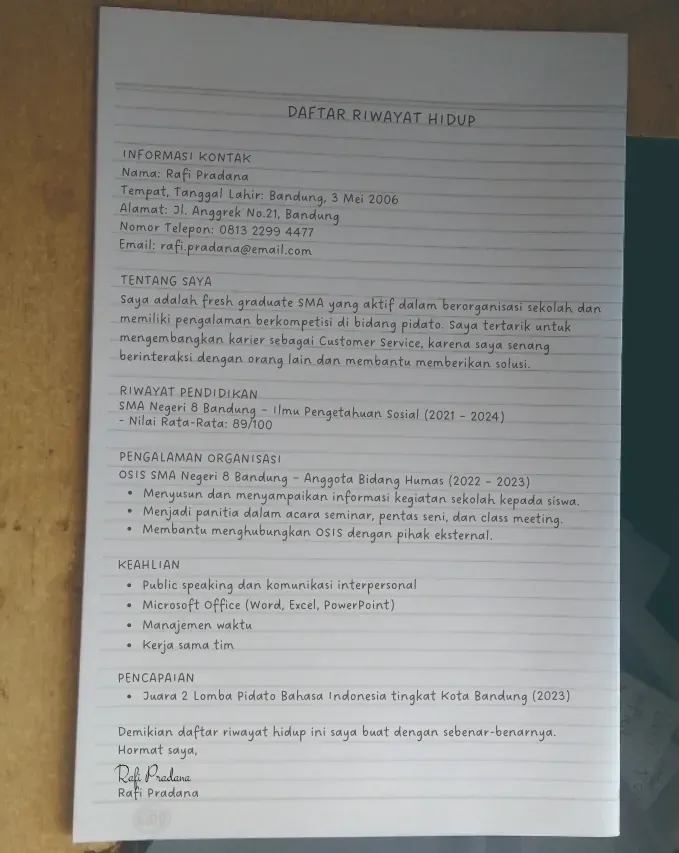 DAFTAR RIWAYAT HIDUP
INFORMASI KONTAK
Nama: Rafi Pradana
Tempat, Tanggal Lahir: Bandung, 3 Mei 2006
Alamat: Jl. Anggrek No.21, Bandung
Nomor Telepon: 0813 2299 4477
Email: rafi.pradana@email.com
TENTANG SAYA
Saya adalah fresh graduate SMA yang aktif dalam berorganisasi sekolah dan
memiliki pengalaman berkompetisi di bidang pidato. Saya tertarik untuk
mengembangkan karier sebagai Customer Service, karena saya senang
berinteraksi dengan orang lain dan membantu memberikan solusi.
RIWAYAT PENDIDIKAN
SMA Negeri 8 Bandung - Ilmu Pengetahuan Sosial (2021 - 2024)
- Nilai Rata-Rata: 89/100
PENGALAMAN ORGANISASI
OSIS SMA Negeri 8 Bandung - Anggota Bidang Humas (2022 - 2023)
• Menyusun dan menyampaikan informasi kegiatan sekolah kepada siswa.
• Menjadi panitia dalam acara seminar, pentas seni, dan class meeting.
• Membantu menghubungkan OSIS dengan pihak eksternal.
KEAHLIAN
• Public speaking dan komunikasi interpersonal
• Microsoft Office (Word, Excel, PowerPoint)
• Manajemen waktu
• Kerja sama tim
PENCAPAIAN
• Juara 2 Lomba Pidato Bahasa Indonesia tingkat Kota Bandung (2023)
Demikian daftar riwayat hidup ini saya buat dengan sebenar-benarnya.
Hormat saya,
Rafi Pradana
Rafi Pradana